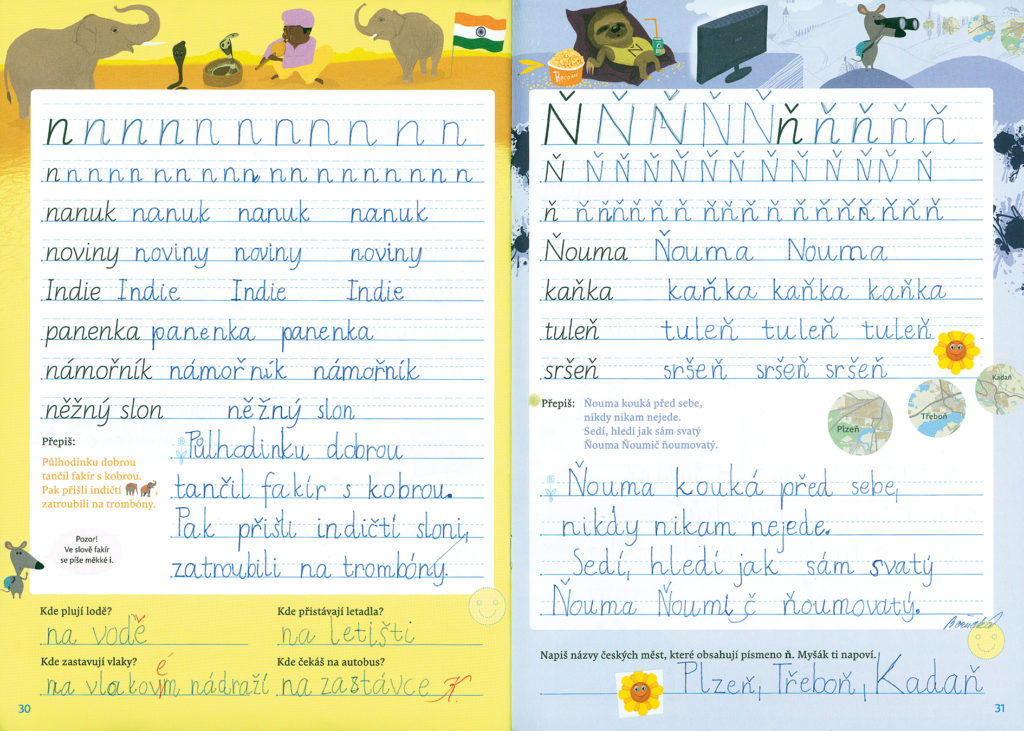 n n n n n n n n n n n
n n n n n n n n n n n n n n n n n n n
nanuk nanuk nanuk nanuk
noviny noviny noviny noviny
Indie Indie Indie Indie
panenka panenka panenka
námořník námořník námořník
něžný slon něžný slon
Přepiš:
Půlhodinku dobrou
tančil fakír s kobrou.
Pak přišli indičtí
zatroubili na trombóny.
Půlhodinku dobrou
tančil fakír s kobrou.
Pak přišli indičtí sloni,
zatroubili na trombóny.
Pozor!
Ve slově fakír
se píše měkké i.
Kde plují lodě?
na vodě
Kde přistávají letadla?
na letišti
Kde zastavují vlaky?
na vlakovém nádraží
Kde čekáš na autobus?
na zastávce
30
POPCORN
Ň Ň Ň Ň Ň ň ň ň ň ň
Ň Ň Ň Ň Ň Ň Ň Ň Ň Ň Ň Ň Ň
ň ň ň ň ň ň ň ň ň ň ň ň ň ň ň ň ň ň
Ňouma Ňouma Nouma
kaňka kaňka kaňka kaňka
tuleň tuleň tuleň tuleň
sršeň sršeň sršeň sršeň
Přepiš:
Ňouma kouká před sebe,
nikdy nikam nejede.
Sedí, hledí jak sám svatý
Ňouma Ňoumič ňoumovatý.
Plzeň
Třeboň
Kadaň
Ňouma kouká před sebe,
nikdy nikam nejede.
Sedí, hledí jak sám svatý
Ňouma Ňoumič ňoumovatý.
Napiš názvy českých měst, které obsahují písmeno ň. Myšák ti napoví.
Plzeň, Třeboň, Kadaň
31